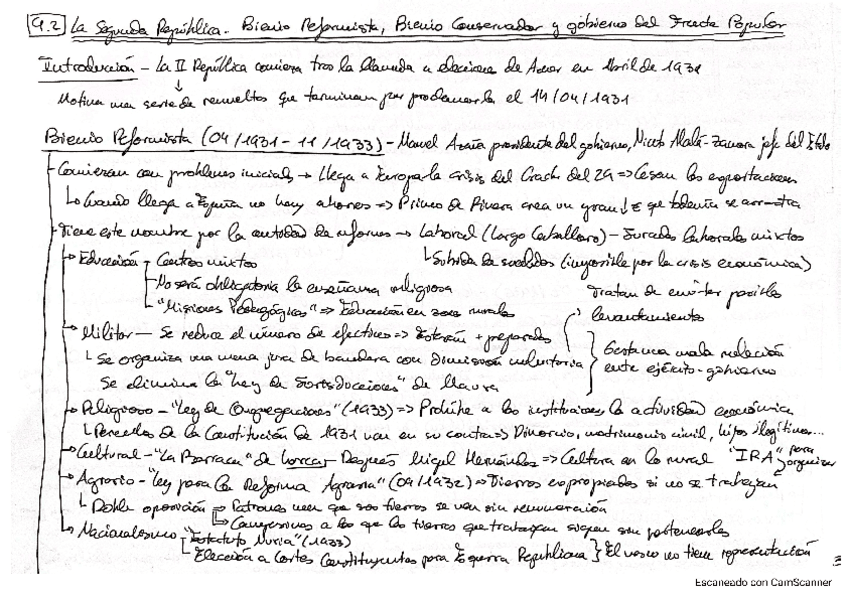 9.2 La Segunda República. Bienio Reformista, Bienio Conservador y gobierno del Frente Popular
Introducción - La II República comienza tras la llamada a elecciones de Aznar en Abril de 1931
↓
Motiva una serie de revueltas que terminan por proclamarla el 14/04/1931
Bienio Reformista (04/1931 - 11/1933) - Manuel Azaña presidente del gobierno, Niceto Alcalá-Zamora jefe del Estado
Comienzan con problemas iniciales → Llega a Europa la crisis del Crash del 29 => Cesan las exportaciones
↳ Cuando llega a España no hay ahorros => Primo de Rivera crea un gran ↓ € que todavía se arrastra
Tiene este nombre por la cantidad de reformas → Laboral (Largo Caballero) - Jurados laborales mixtos
↳ Subida de sueldos (imposible por la crisis económica)
→ Educación - Centros mixtos
No será obligatoria la enseñanza religiosa
"Misiones Pedagógicas" => Educación en zonas rurales
Tratan de evitar posible levantamiento
→ Militar - Se reduce el número de efectivos => Estarán + preparados
↳ Se organiza una nueva jura de bandera con dimisión voluntaria
Se elimina la "Ley de Jurisdicciones" de Maura
Gesta una mala relación entre ejército-gobierno
→ Religioso - "Ley de Congregaciones" (1933) => Prohíbe a las instituciones la actividad económica
↳ Parcelas de la Constitución de 1931 van en su contra => Divorcio, matrimonio civil, hijos ilegítimos...
→ Cultural - "La Barraca" de Lorca, Después Miguel Hernández => Cultura en lo rural
"IRA" para organizar
→ Agrario - "Ley para la Reforma Agraria" (09/1932) => Tierras expropiadas si no se trabajan
↳ Doble oposición → Patronos ven que sus tierras se van sin remuneración
↳ Campesinos a los que las tierras que trabajan siguen sin pertenecerles
→ Nacionalismo - "Estatuto Nuria" (1933)
Elección a Cortes Constituyentes para Esquerra Republicana } El vasco no tiene representación
3
Escaneado con CamScanner